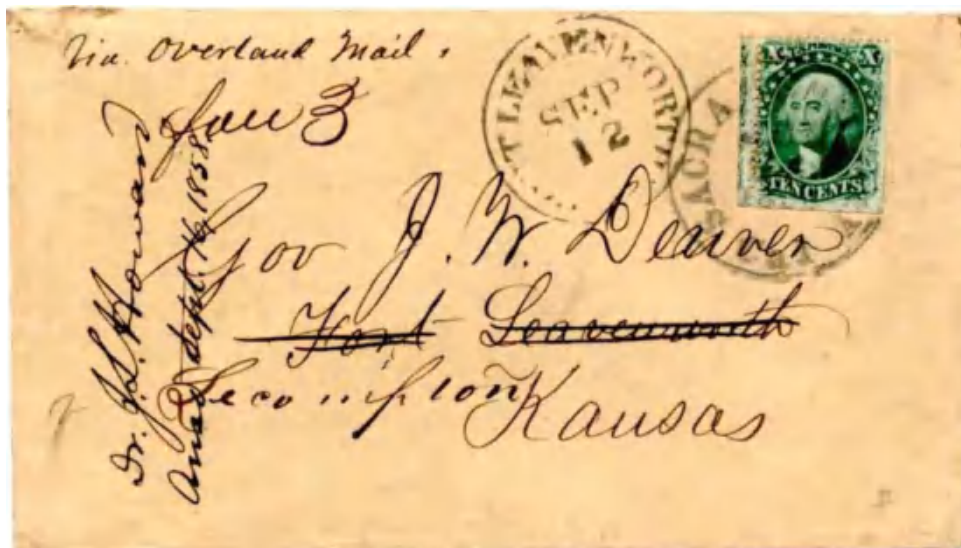 Via Overland Mail.
Forw 3
FT LEAVENWORTH
SEP
12
X X
TEN CENTS
SACRA
Gov J. W. Denver
Fort Leavenworth
Lecompton
Kansas
Dr. J. L. Howard
Ansd Sept. 16, 1858